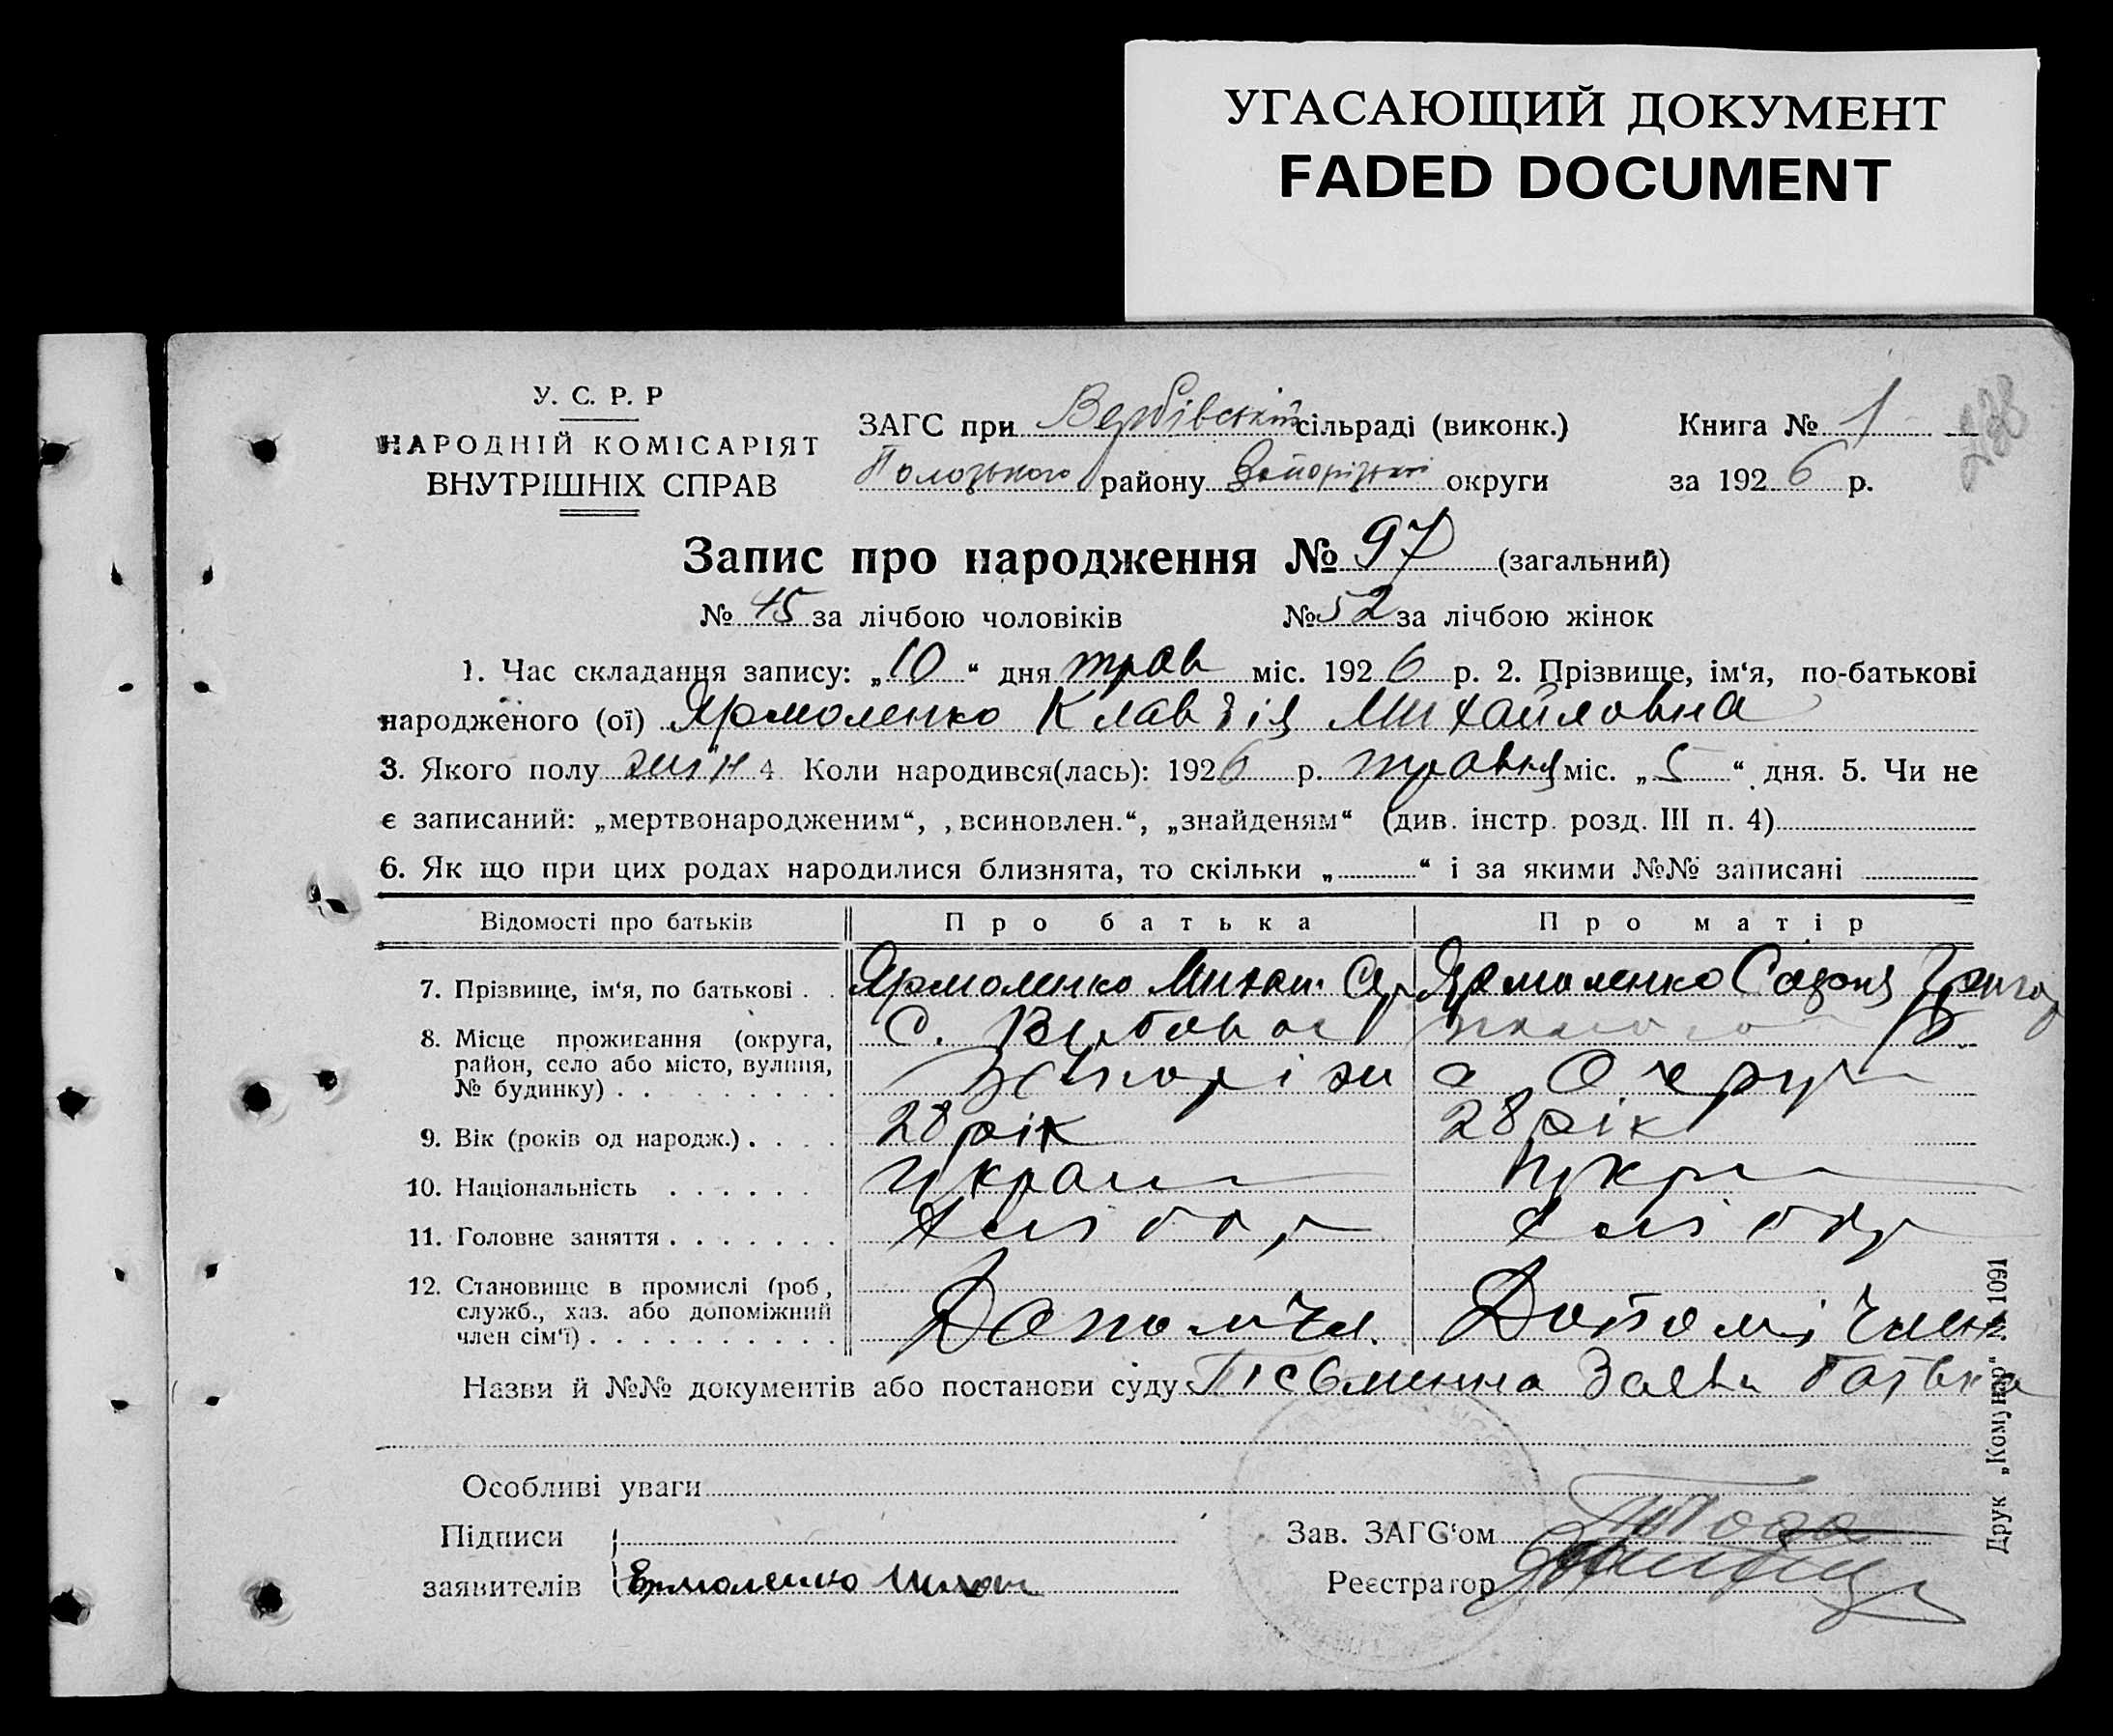 УГАСАЮЩИЙ ДОКУМЕНТ
FADED DOCUMENT
У. С. Р. Р
НАРОДНІЙ КОМІСАРІЯТ
ВНУТРІШНІХ СПРАВ
ЗАГС при Вербівській сільраді (виконк.)
Пологького району Запорізької округи
Книга № 1
за 1926 р.
238
Запис про народження № 97 (загальний)
№ 45 за лічбою чоловіків № 52 за лічбою жінок
1. Час складання запису: „10“ дня трав міс. 1926 р. 2. Прізвище, ім‘я, по-батькові
народженого (ої) Ярмоленко Клавдія Михайловна
3. Якого полу жін 4 Коли народився(лась): 1926 р. травня міс. „5“ дня. 5. Чи не
є записаний: „мертвонародженим“, „всиновлен.“, „знайденям“ (див. інстр. розд. III п. 4)
6. Як що при цих родах народилися близнята, то скільки „ “ і за якими №№ записані
Відомості про батьків Про батька Про матір
7. Прізвище, ім‘я, по батькові . . Ярмоленко Михай. Ярмоленко Софія Григор
8. Місце проживання (округа, район, село або місто, вулиця, № будинку) . . С. Вербова
Запоріж Округ
9. Вік (років од народж.) . . . . 28 рік 28 рік
10. Національність . . . . . . Украин Укра
11. Головне заняття . . . . . . . хлібор хлібор
12. Становище в промислі (роб, служб., хаз. або допоміжний член сім‘ї) . . . . . . . . . . Допом Чл. Допомі Член
Назви й №№ документів або постанови суду Пісьменна Заява батька
Особливі уваги
Підписи
заявителів Ермоленко Михаи
Зав. ЗАГС‘ом
Реєстратор
Друк „Комунар“ № 1091